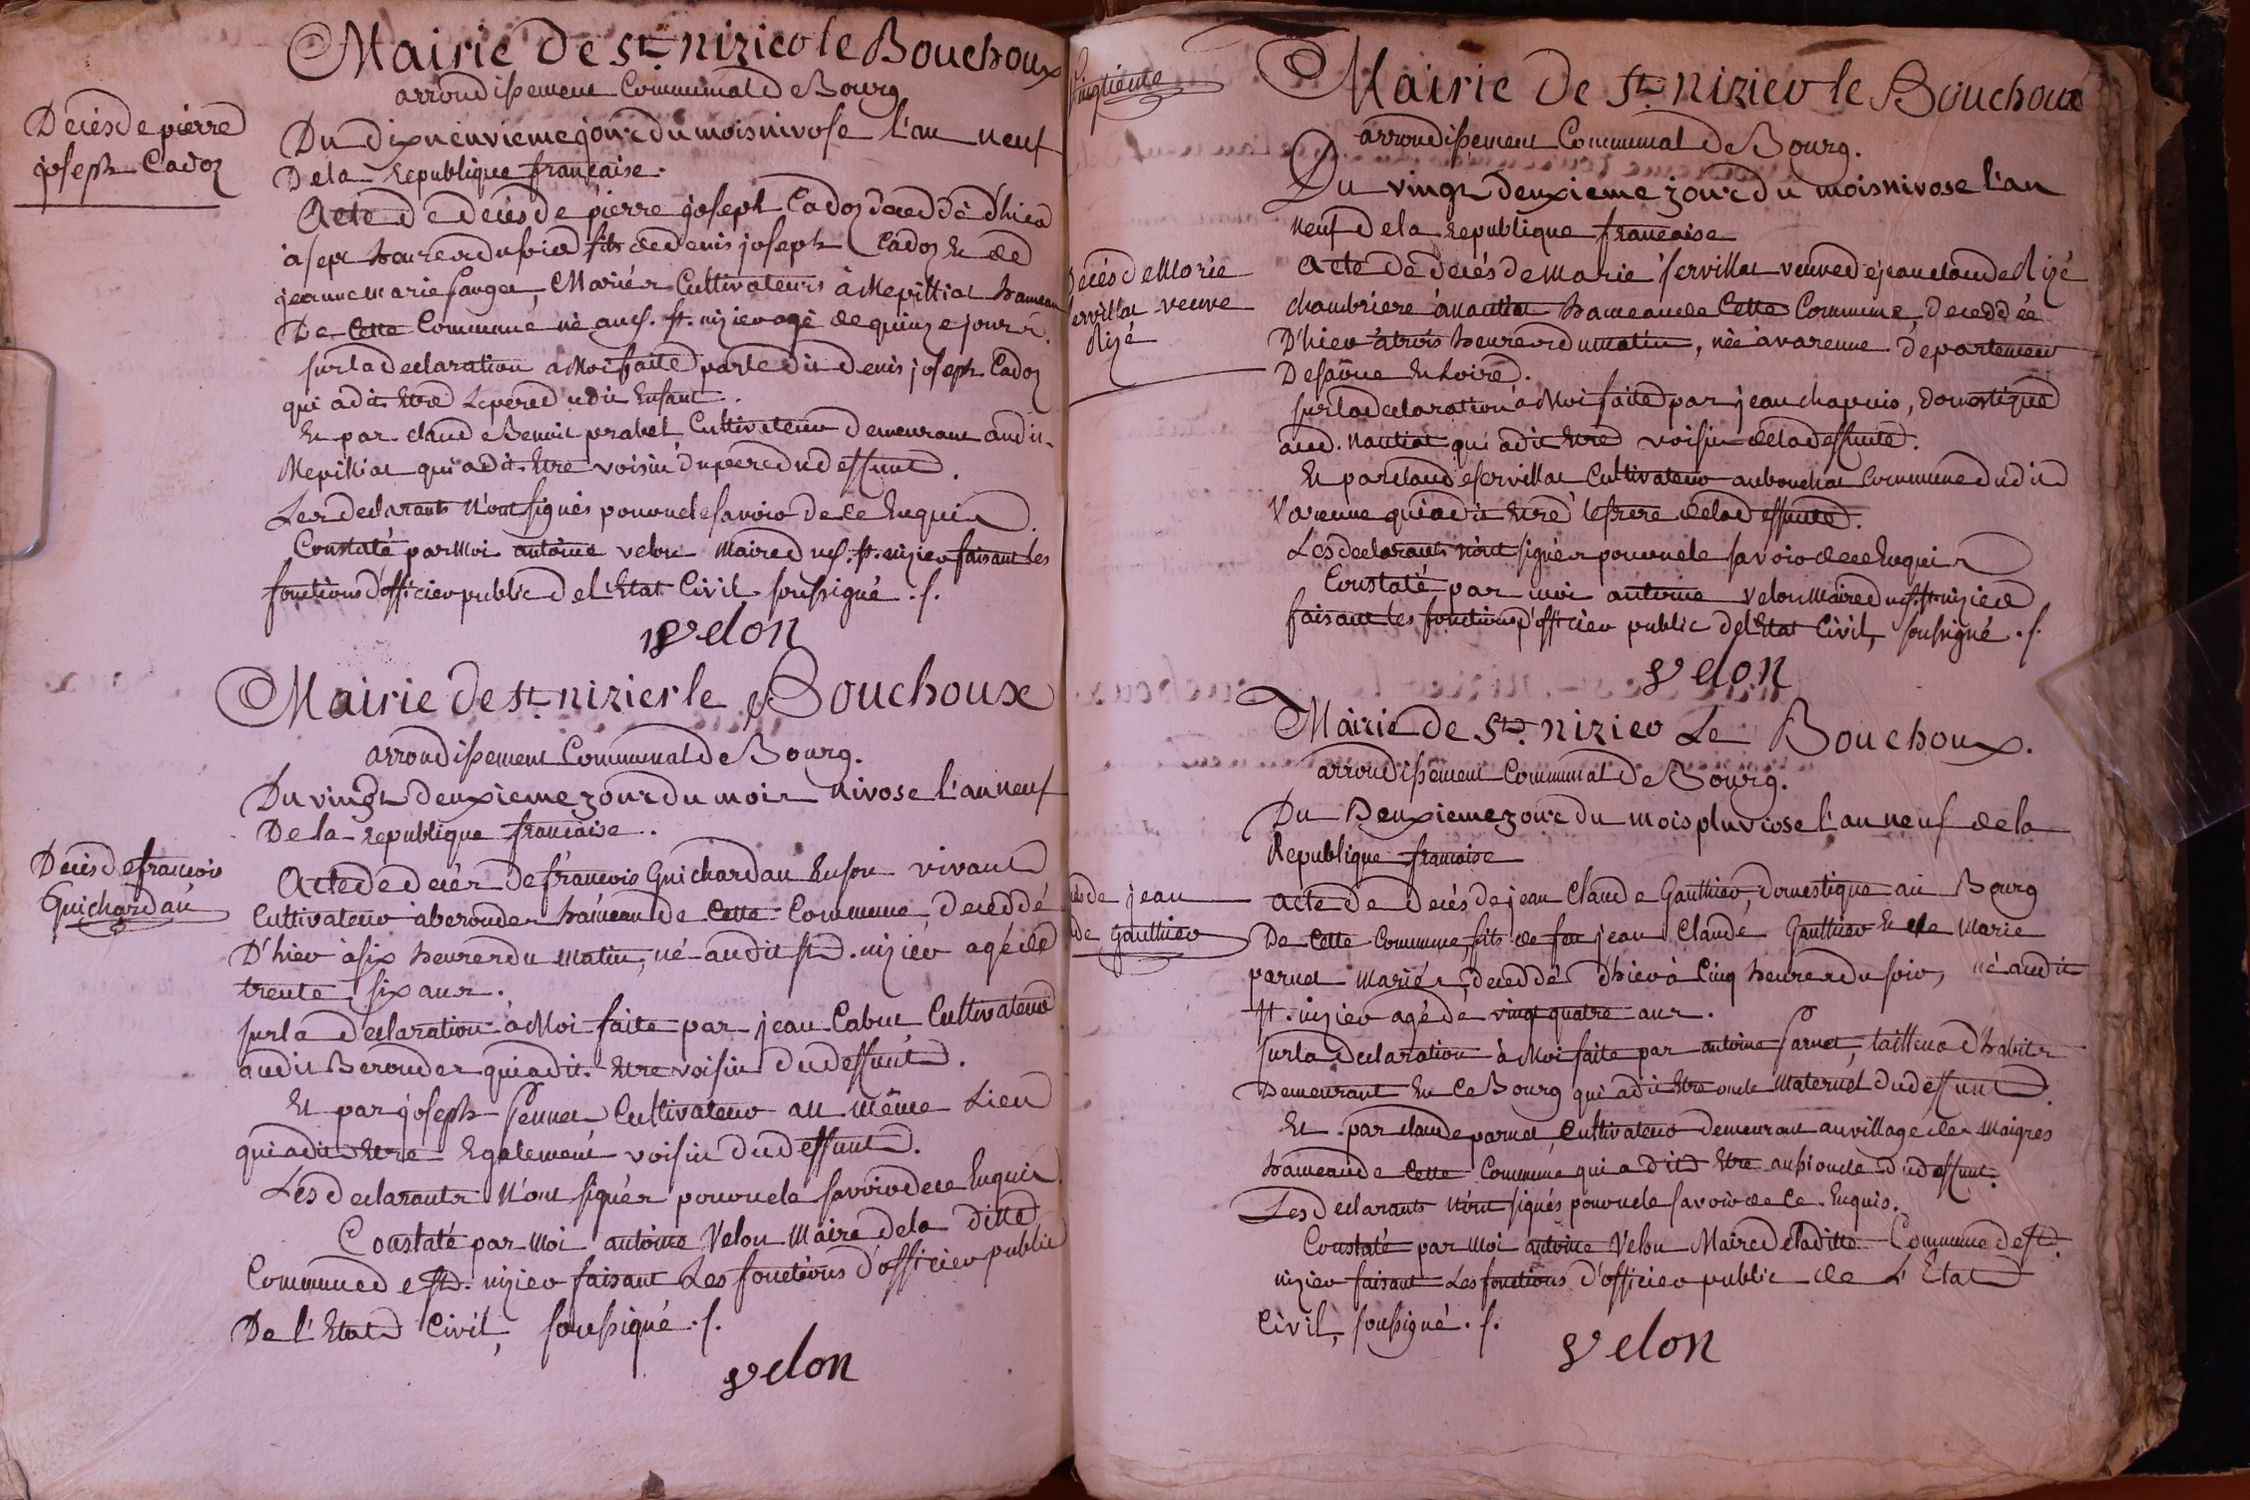 Mairie de St. nizier le Bouchoux
arrondissement Communal de Bourg
Décès de pierre
joseph Cadoz
Du dix neuvieme jour du mois nivose l'an neuf
De la République française.
Acte de décès de pierre joseph Cadoz décédé d'hier
à sept heures du soir fils de denis joseph Cadoz et de
jeanne marie Mariés Cultivateurs à Mepilliat hameau
De Cette Commune né aud. st. nizier agé de quinze jours.
sur la declaration à Moi faite par le dit denis joseph Cadoz
qui a dit Etre Le pere du dit Enfant.
Et par claude Benoit prabel Cultivateur demeurant audit
Mepilliat qui a dit Etre voisin du pere du deffunt.
Les declarants N'ont signés pour ne le savoir de ce Enquis.
Constaté par Moi antoine velon Maire dud. st. nizier faisant les
fonctions d'officier public de l'Etat Civil soussigné .f.
velon
Mairie de St. nizier le Bouchoux
arrondissement Communal de Bourg.
Du vingt deuxieme jour du mois nivose l'an neuf
De la republique française.
Décès de francois
Guichardan
Acte de décès de francois Guichardan En son vivant
Cultivateur à beroudes hameau de Cette Commune décédé
D'hier à six heures du matin, né audit st. nizier agé de
trente six ans.
sur la declaration à Moi faite par jean Cabut Cultivateur
audit Beroudes qui a dit Etre voisin du deffunt.
Et par joseph Cultivateur au même Lieu
qui a dit Etre Egalement voisin du deffunt.
Les declarants N'ont signés pour ne le savoir de ce Enquis.
Constaté par Moi antoine Velon Maire de la ditte
Commune de st. nizier faisant Les fonctions d'officier public
De l'Etat Civil, soussigné .f.
velon
vingtieme
Mairie de St. nizier le Bouchoux
arrondissement Communal de Bourg.
Du vingt deuxieme jour du mois nivose l'an
neuf de la republique française
Décès de Marie
servillat veuve
Rizé
Acte de décès de marie servillat veuve de jean claude Rizé
chambriere à nantiat hameau de Cette Commune, décédée
D'hier à trois heures du matin, née à varenne département
De saône Et Loire.
sur la declaration à Moi faite par jean chapuis, domestique
aud. nantiat qui a dit Etre voisin de la deffunte.
Et par claude servillat Cultivateur au bouchat Commune du dit
Varenne qui a dit Etre le frere de la deffunte.
Les declarants n'ont signés pour ne le savoir de ce Enquis
Constaté par moi antoine velon Maire dud. st. nizier
faisant les fonctions d'officier public de l'Etat Civil, soussigné .f.
velon
Mairie de St. nizier Le Bouchoux.
arrondissement Communal de Bourg.
Du Deuxieme jour du mois pluviose l'an neuf de la
Republique francaise
de jean
de Gauthier
Acte de Décès de jean Claude Gauthier, domestique au Bourg
De Cette Commune, fils de feu jean Claude Gauthier Et de Marie
parnet mariés, décédé d'hier à Cinq heures du soir, né audit
st. nizier agé de vingt quatre ans.
sur la declaration à Moi faite par antoine parnet, tailleur d'habits
Demeurant En ce Bourg qui a dit Etre oncle maternel du deffunt.
Et par claude parnet Cultivateur demeurant au village des maigres
hameau de Cette Commune qui a dit Etre aussi oncle du deffunt.
Les declarants n'ont signés pour ne le savoir de ce Enquis.
Constaté par moi antoine Velon Maire de la ditte Commune de st.
nizier faisant Les fonctions d'officier public de L'Etat
Civil, soussigné .f.
velon